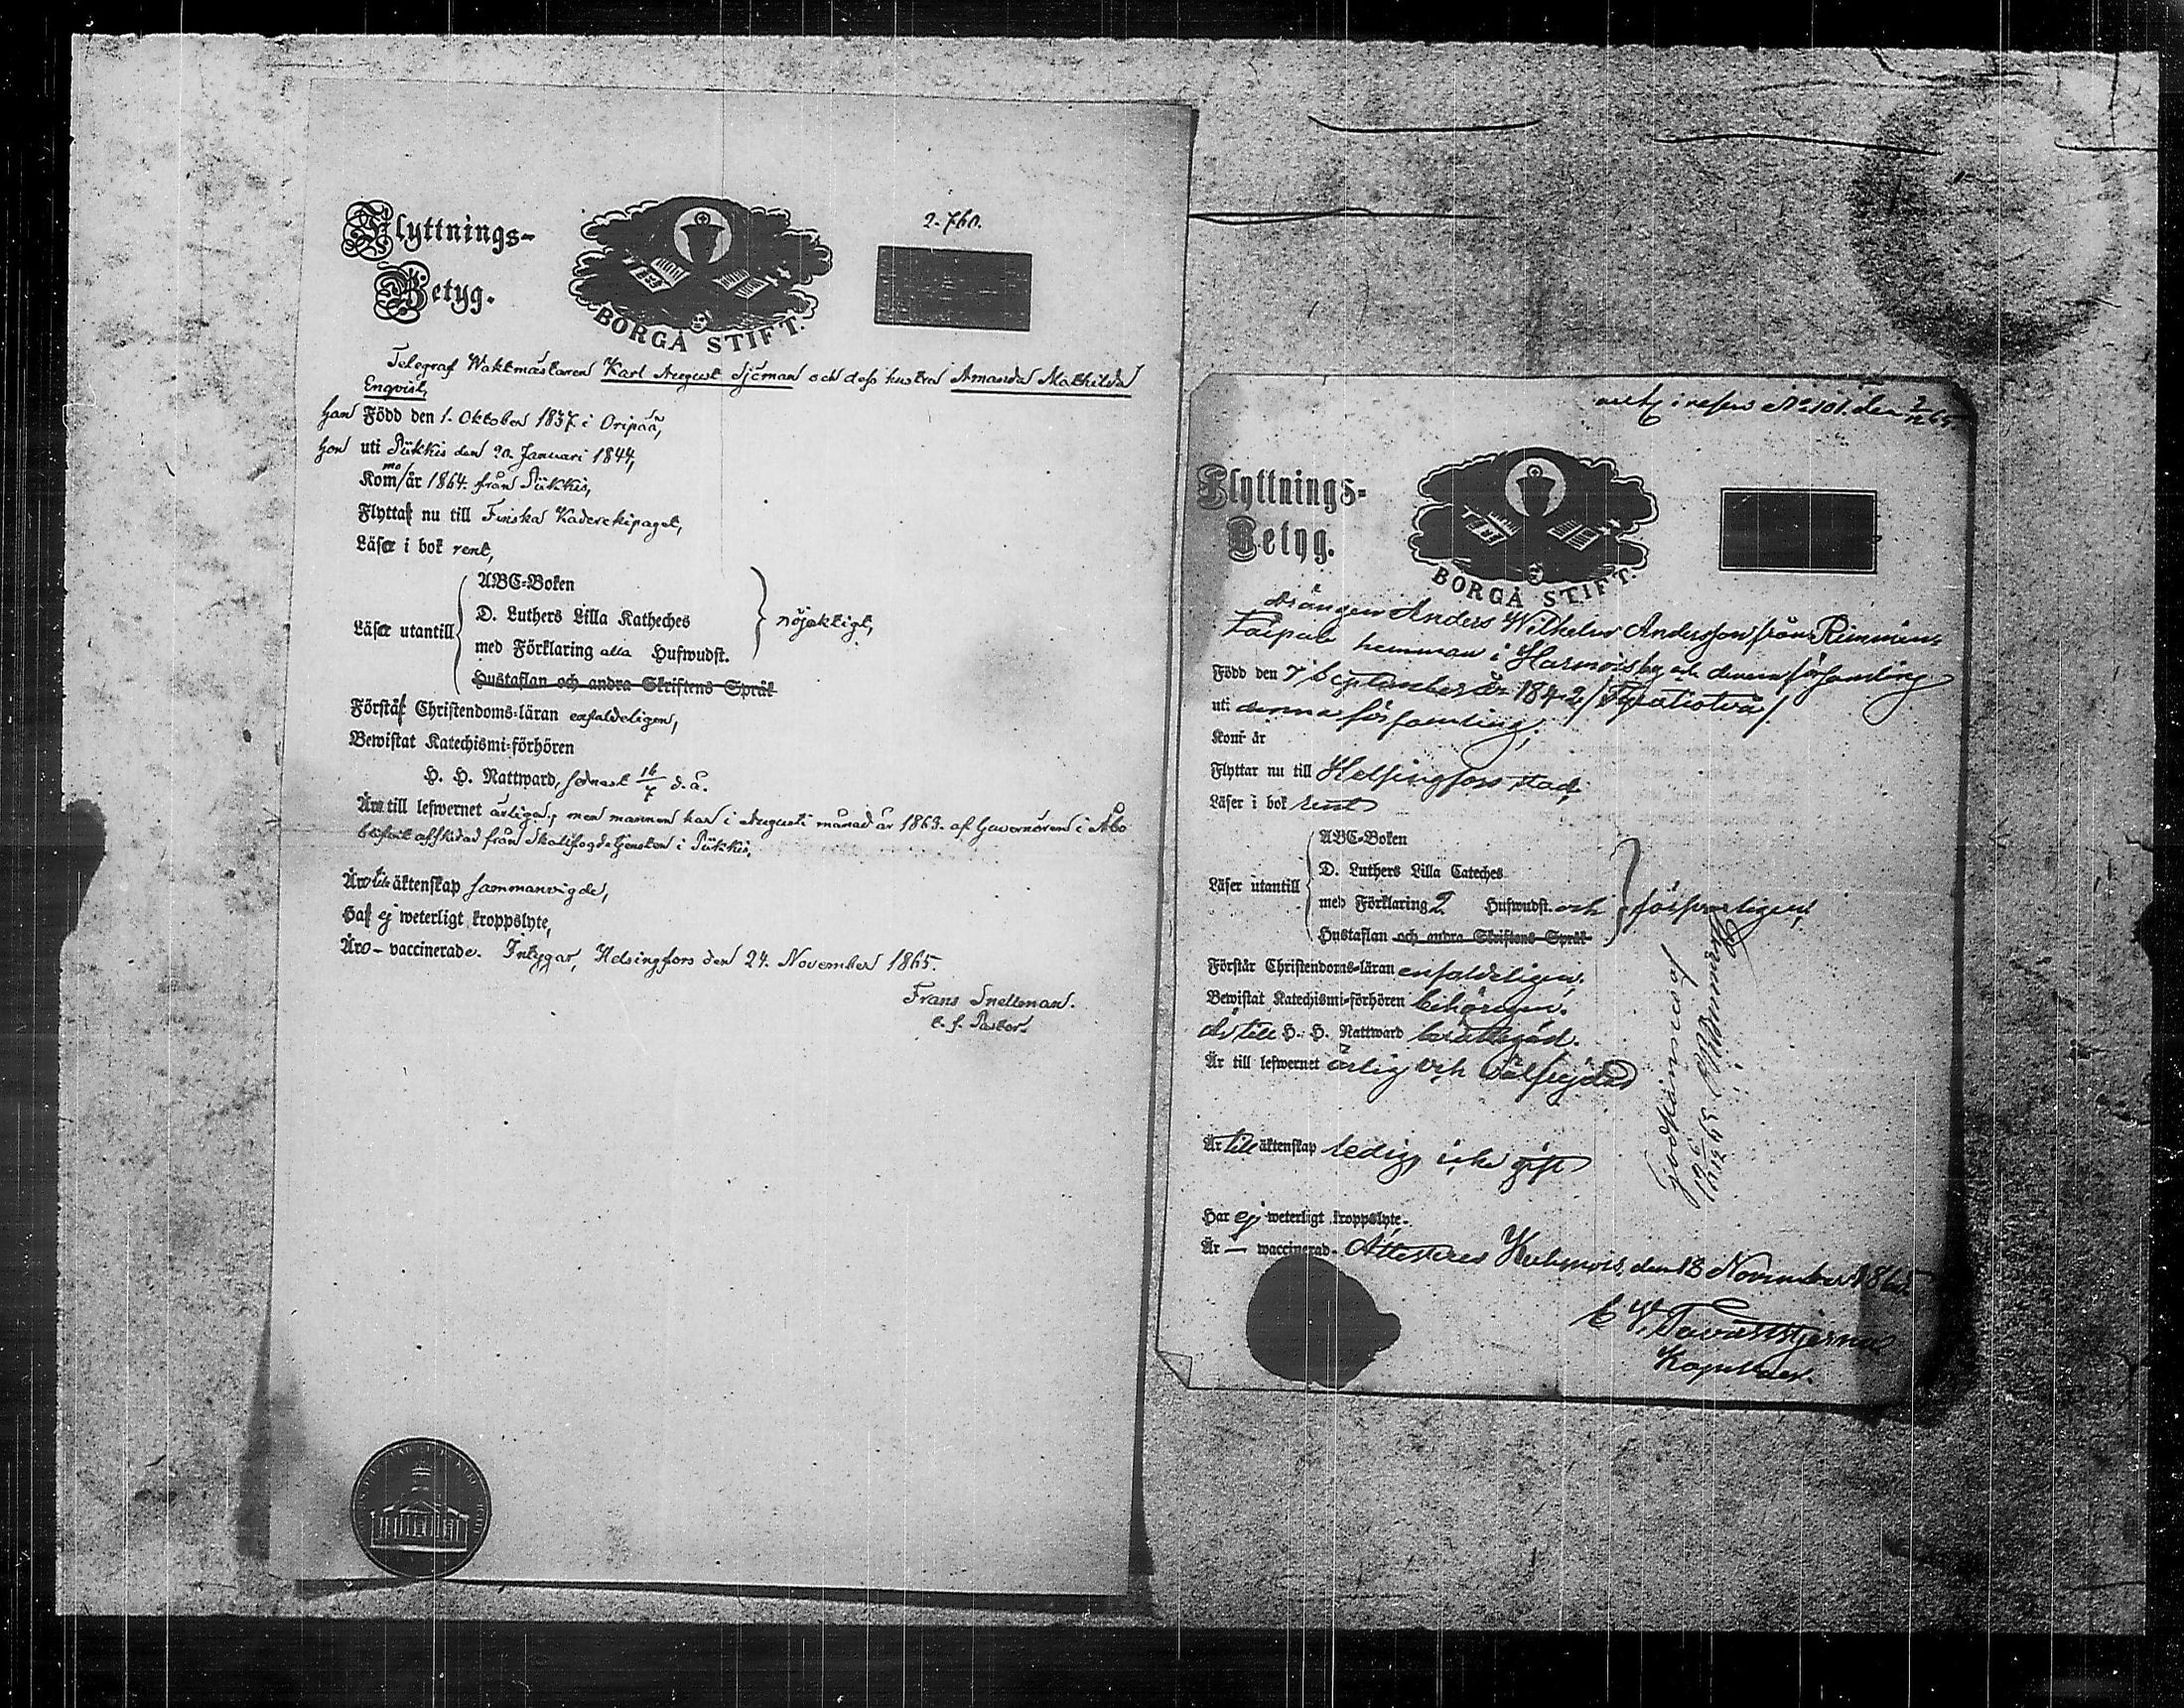 Flyttnings-
Betyg.
BORGÅ STIFT.
2. 760.
Telegraf Waktmästaren Karl August Sjöman och dess hustru Amanda Mathilda
Enqvist,
han Född den 1. Oktober 1837. i Oripää,
hon uti Pükkis den 20 Januari 1844,
Kommo/år 1864. från Pükkis,
Flytta nu till Finska Kaderekipaget,
Läsa i bok rent,
ABC-Boken
D. Luthers Lilla Katheches
Läsa utantill
nöjaktigt,
med Förklaring alla Hufwudst.
Hustaflan och andra Skriftens Språk
Förstå Christendoms-läran enfaldeligen,
Bewistat Katechismi-förhören
H. H. Nattward, senast 16/7 d. å.
Äro till lefwernet ärliga, men mannen har i Augusti månad år 1863. af Guvernören i Åbo
blifvit afskedad från Skallfogdetjensten i Pükkis.
Äro till äktenskap sammanvigde,
Ha ej weterligt kroppslyte,
Äro - vaccinerade. Intygar, Helsingfors den 24. November 1865.
Frans Snellman.
t. f. Pastor.
i resen No 101. den 7/12 65
Flyttnings-
Betyg.
BORGÅ STIFT.
drängen Anders Wilhelm Andersson från Rimminen
Taipale hemman i Harmois by och denna församling
Född den 7 September år 1842 /Fyratiotvå/
uti denna församling,
Kom år
Flyttar nu till Helsingfors stad,
Läser i bok rent
ABC-Boken
D. Luthers Lilla Cateches
Läser utantill
med Förklaring 2 Hufwudst. och
försvarligen
Hustaflan och andra Skriftens Språk
Förstår Christendoms-läran enfaldeligen.
Bewistat Katechismi-förhören behörigen.
Är till H. H. Nattward berättigad.
Är till lefwernet ärlig och välfrejdad
Är till äktenskap ledig, icke gift
Har ej weterligt kroppslyte.
Är — waccinerad. Attesteras Kuhmois, den 13 November 1865
E V. Tavaststjerna
Kapellan.
Godkännes af